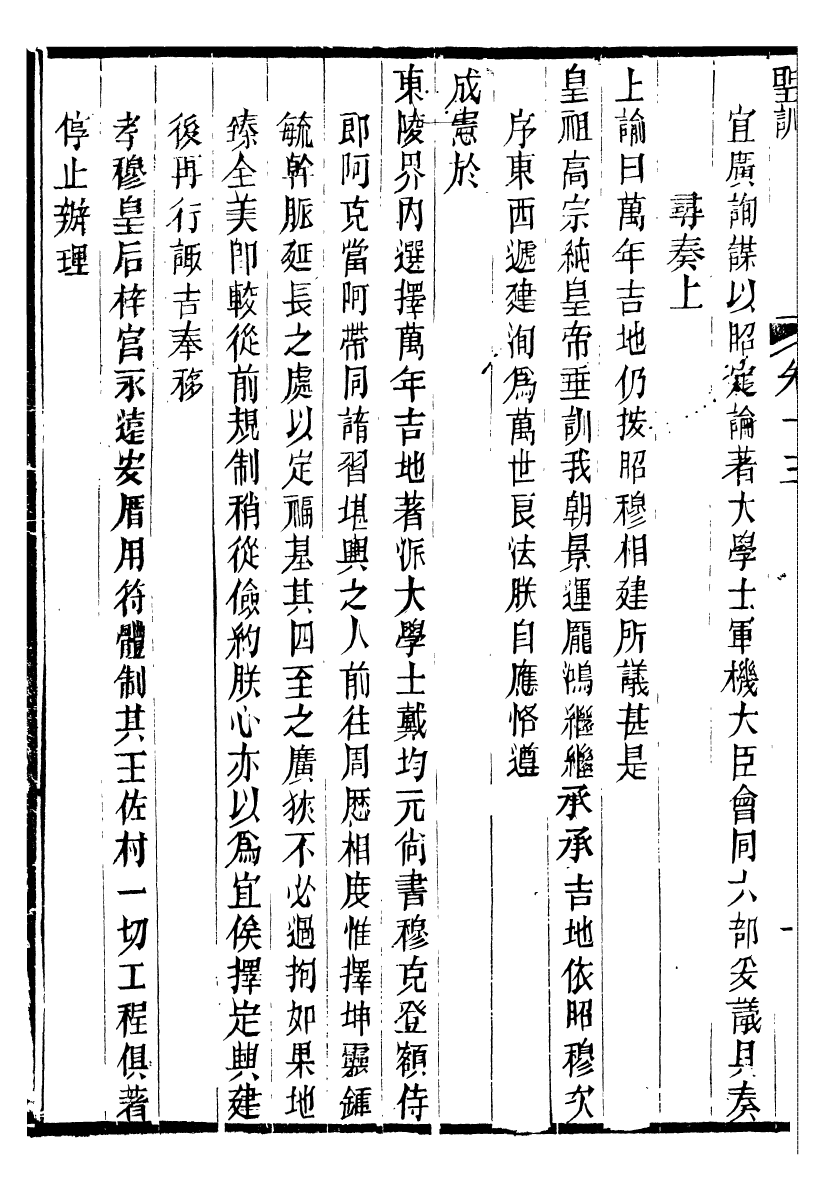 聖訓 卷十三
宜廣詢謀以昭定論著大學士軍機大臣會同六部妥議具奏
尋奏上
上諭曰萬年吉地仍按昭穆相建所議甚是
皇祖高宗純皇帝垂訓我朝景運龐鴻繼繼承承吉地依昭穆次
序東西遞建洵為萬世良法朕自應恪遵
成憲於
東陵界內選擇萬年吉地著派大學士戴均元尚書穆克登額侍
郎阿克當阿帶同諳習堪輿之人前往周歷相度惟擇坤靈鍾
毓幹脈延長之處以定福基其四至之廣狹不必過拘如果地
臻全美即較從前規制稍從儉約朕心亦以為宜俟擇定興建
後再行諏吉奉移
孝穆皇后梓宮永遠安厝用符體制其王佐村一切工程俱著
停止辦理